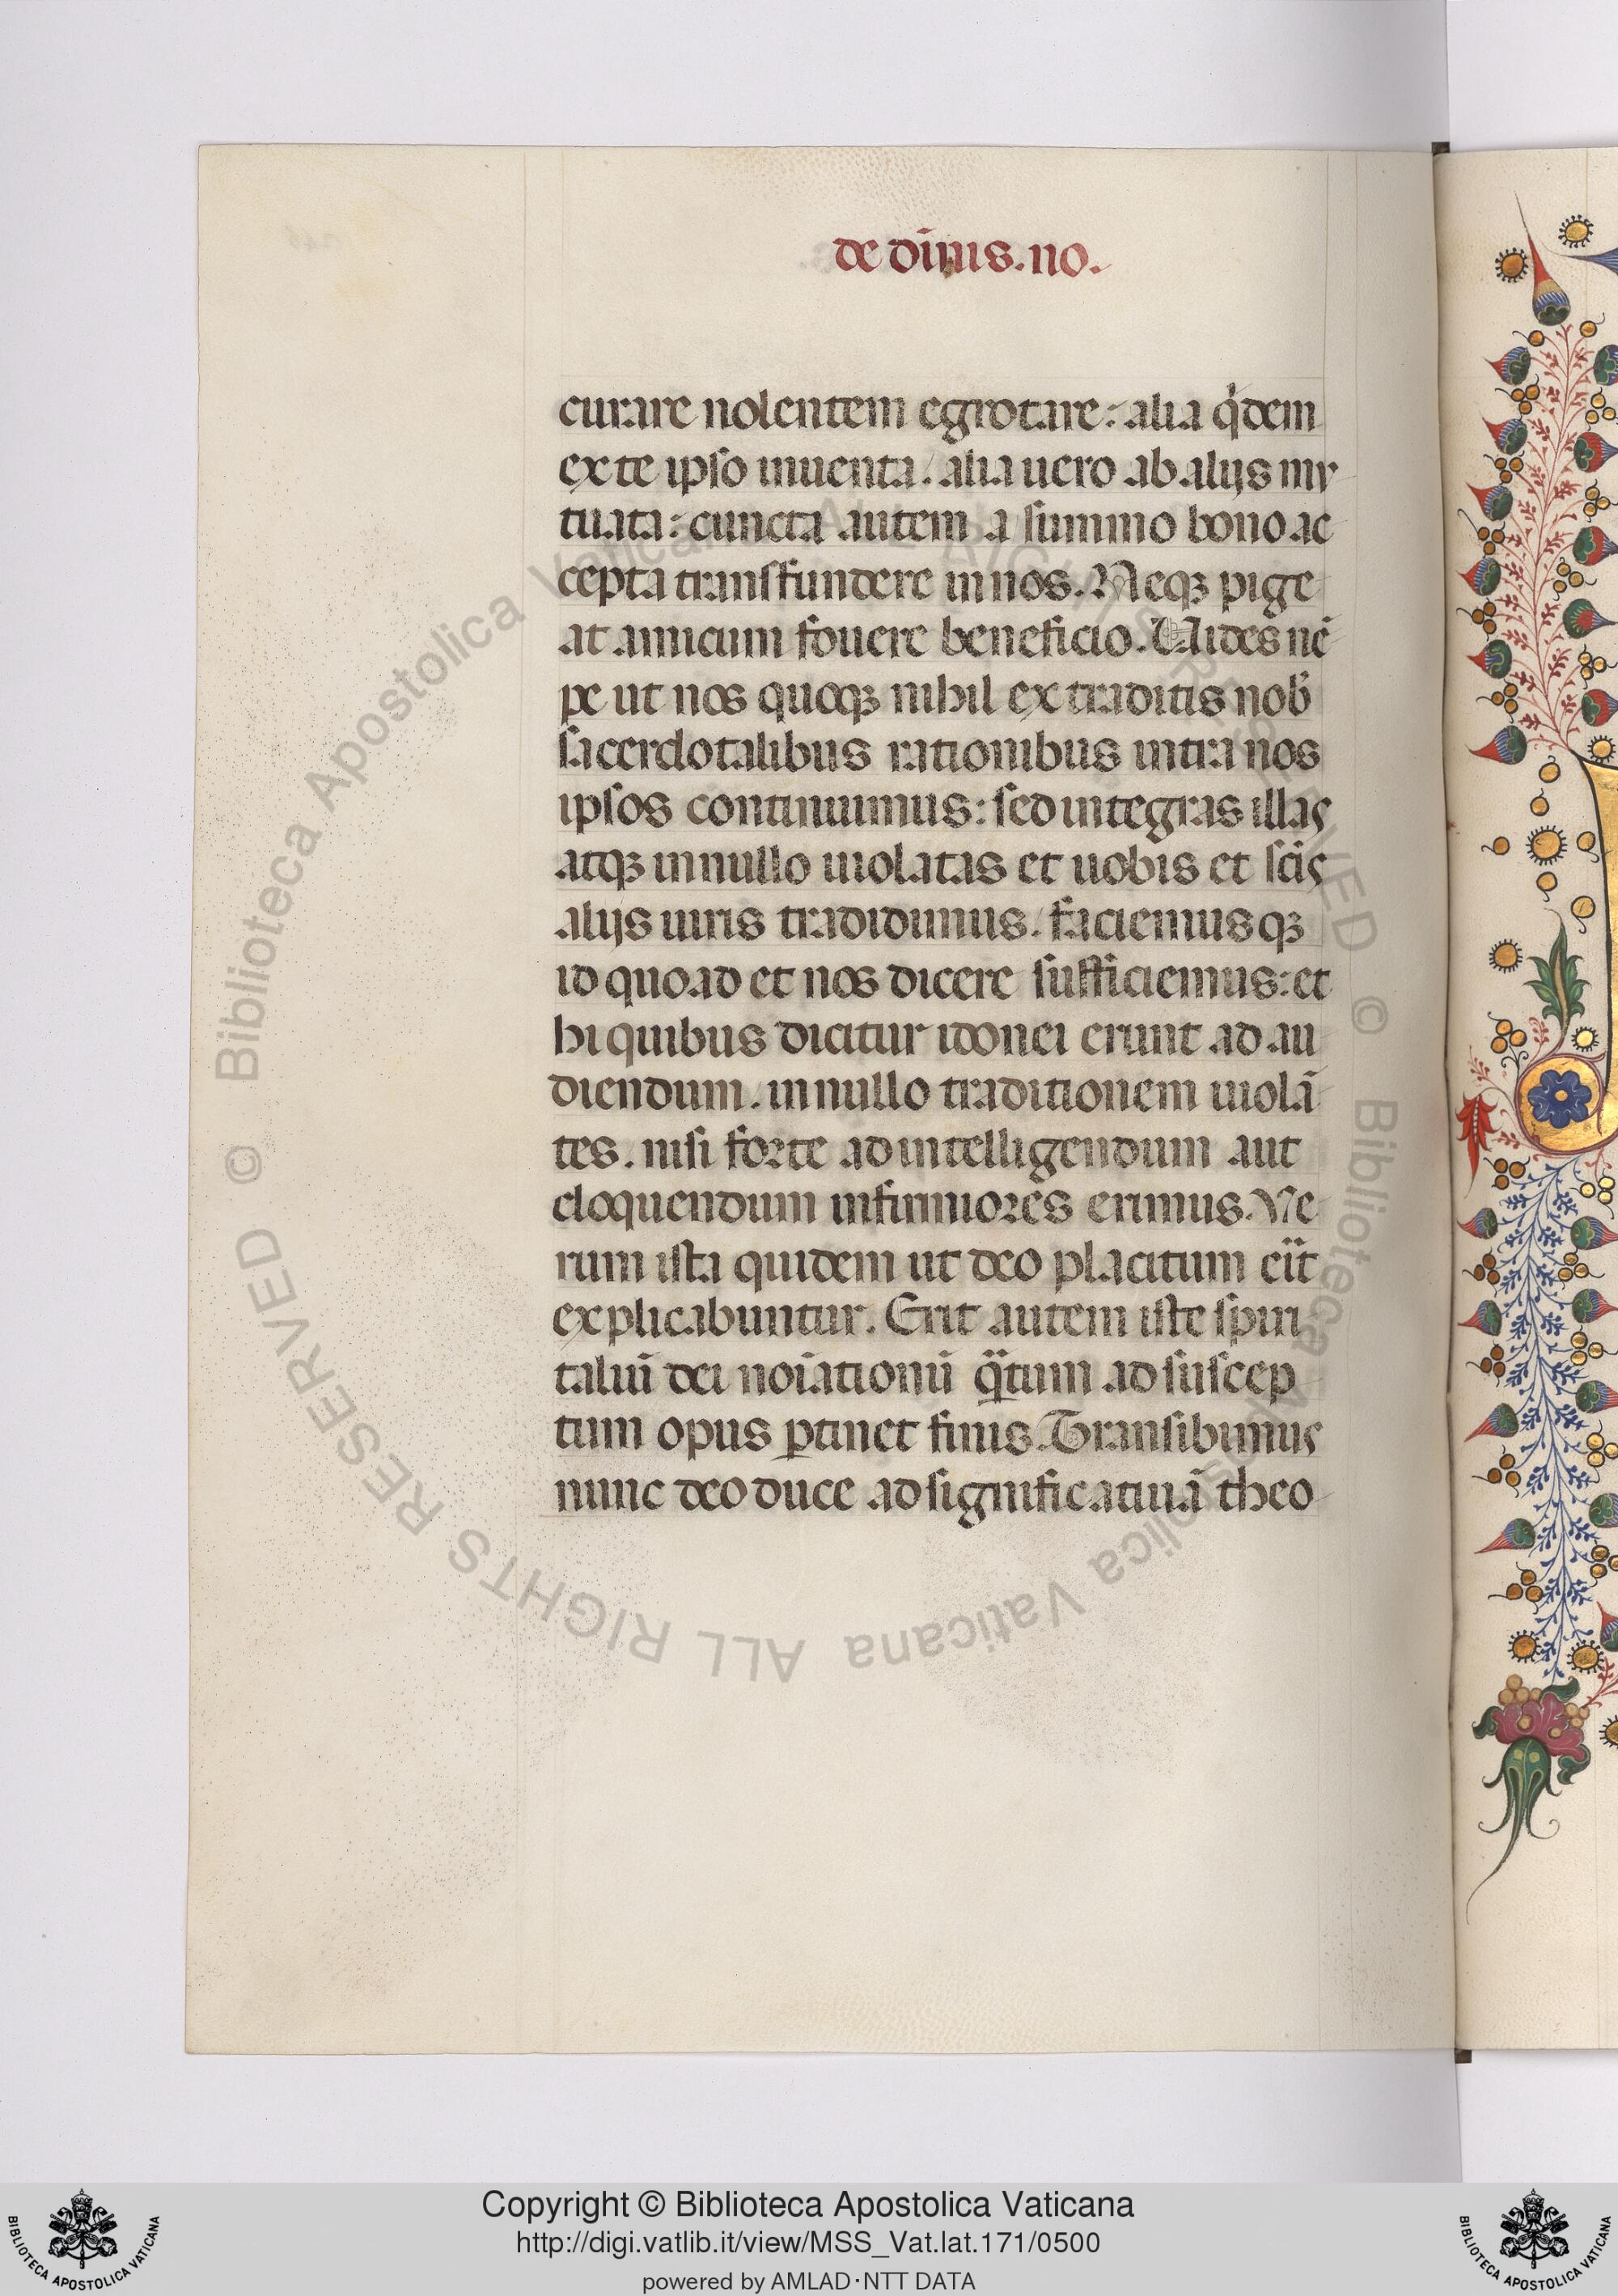 de diūis. no.
curare nolentem egrotare: alia qͥdem
ex te ipso inuenta. alia uero ab alijs mu
tuata: cuncta autem a summo bono ac
cepta transfundere in nos. Neqꝫ pige
at amicum fouere beneficio. Vides nē
pe ut nos quoqꝫ nihil ex traditis nob̄
sacerdotalibus rationibus intra nos
ipsos continuimus: sed integras illas
atqꝫ in nullo uiolatas et uobis et sc̄is
alijs uiris tradidimus. faciemusqꝫ
id quoad et nos dicere sufficiemus: et
hi quibus dicitur idonei erunt ad au
diendum. in nullo traditionem uiolā
tes. nisi forte ad intelligendum aut
eloquendum infirmiores erimus. Ve
rum ista quidem ut deo placitum eīt
explicabuntur. Erit autem iste spiri
taliū dei noiātionū qᷓtum ad suscep
tum opus ꝑtinet finis. Transibimus
nunc deo duce ad significatiuā theo
© Biblioteca Apostolica Vaticana ALL RIGHTS RESERVED
Copyright © Biblioteca Apostolica Vaticana
http://digi.vatlib.it/view/MSS_Vat.lat.171/0500
powered by AMLAD·NTT DATA
BIBLIOTECA APOSTOLICA VATICANA
BIBLIOTECA APOSTOLICA VATICANA